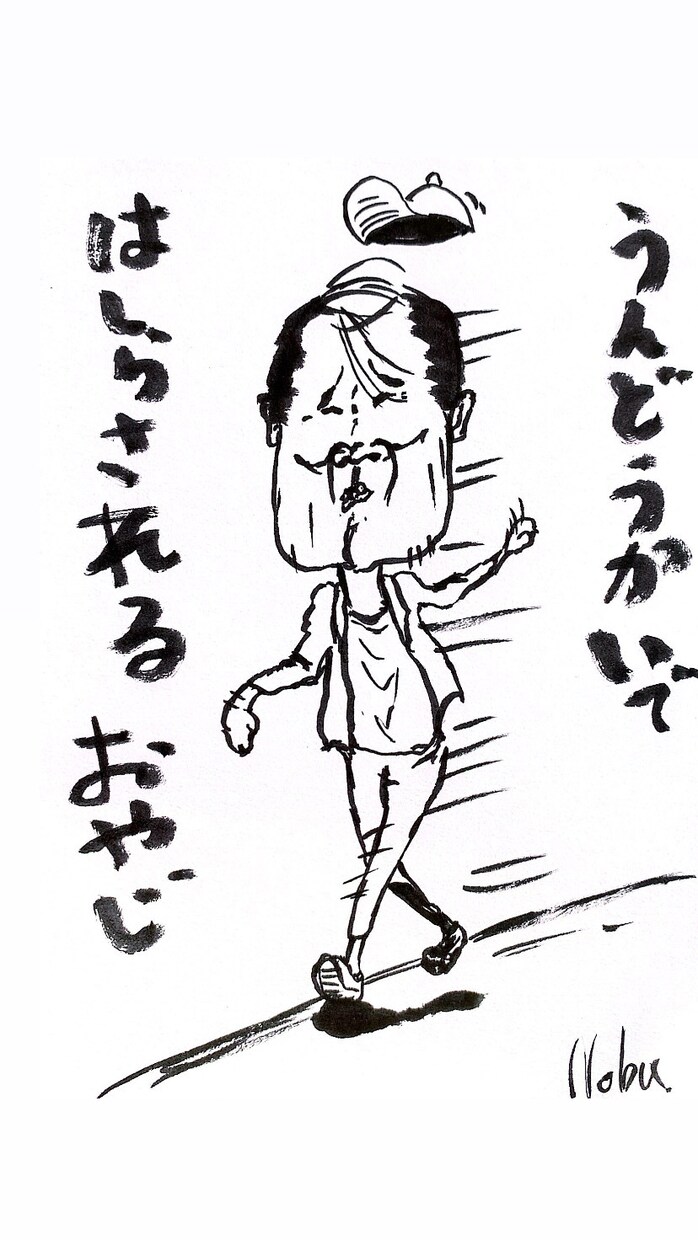 うんどうかいで
はしらされる おやじ
Nobu.